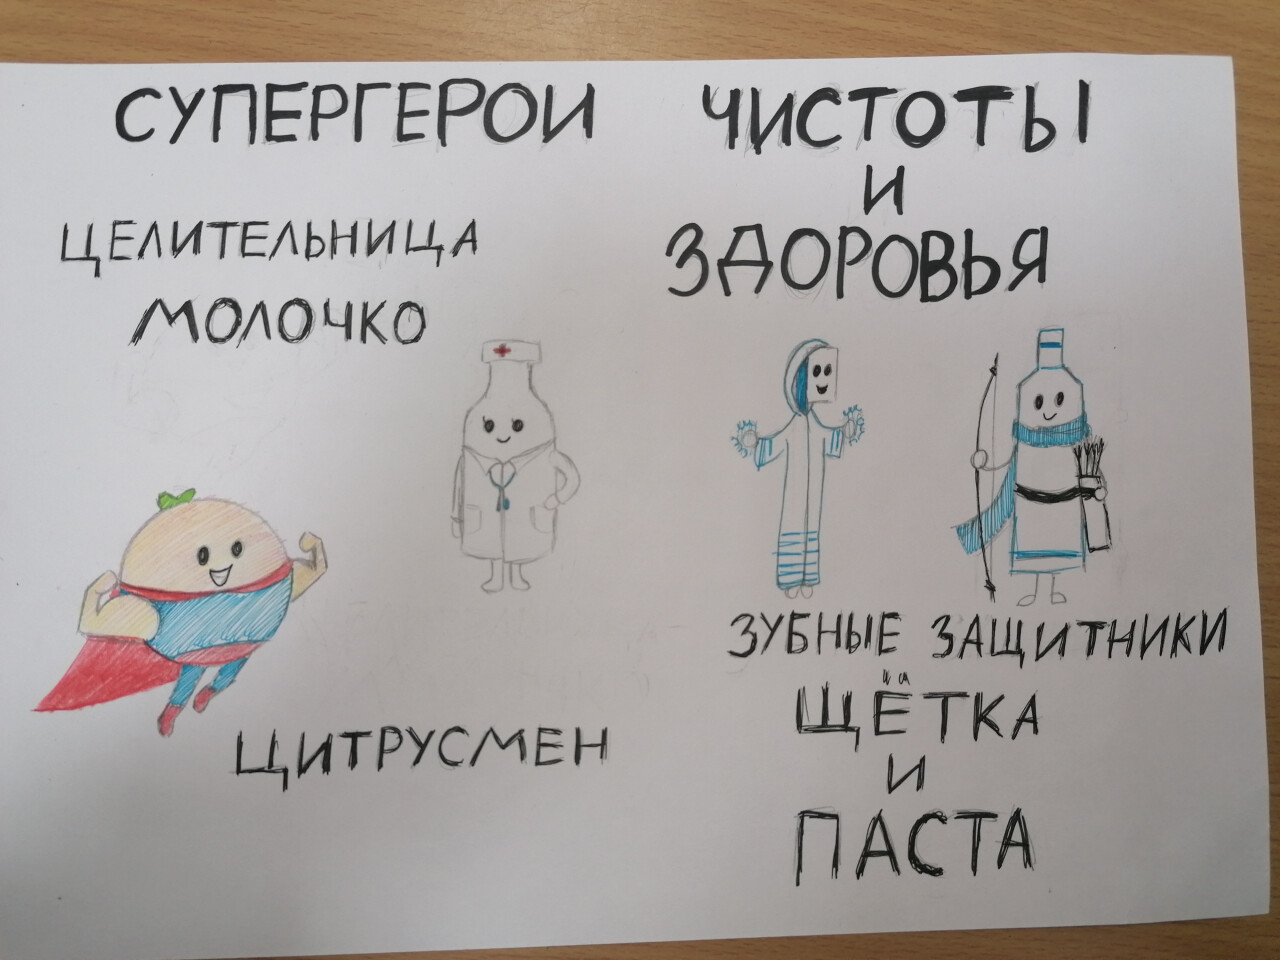 СУПЕРГЕРОИ ЧИСТОТЫ
И
ЗДОРОВЬЯ
ЦЕЛИТЕЛЬНИЦА
МОЛОЧКО
ЦИТРУСМЕН
ЗУБНЫЕ ЗАЩИТНИКИ
ЩЁТКА
И
ПАСТА